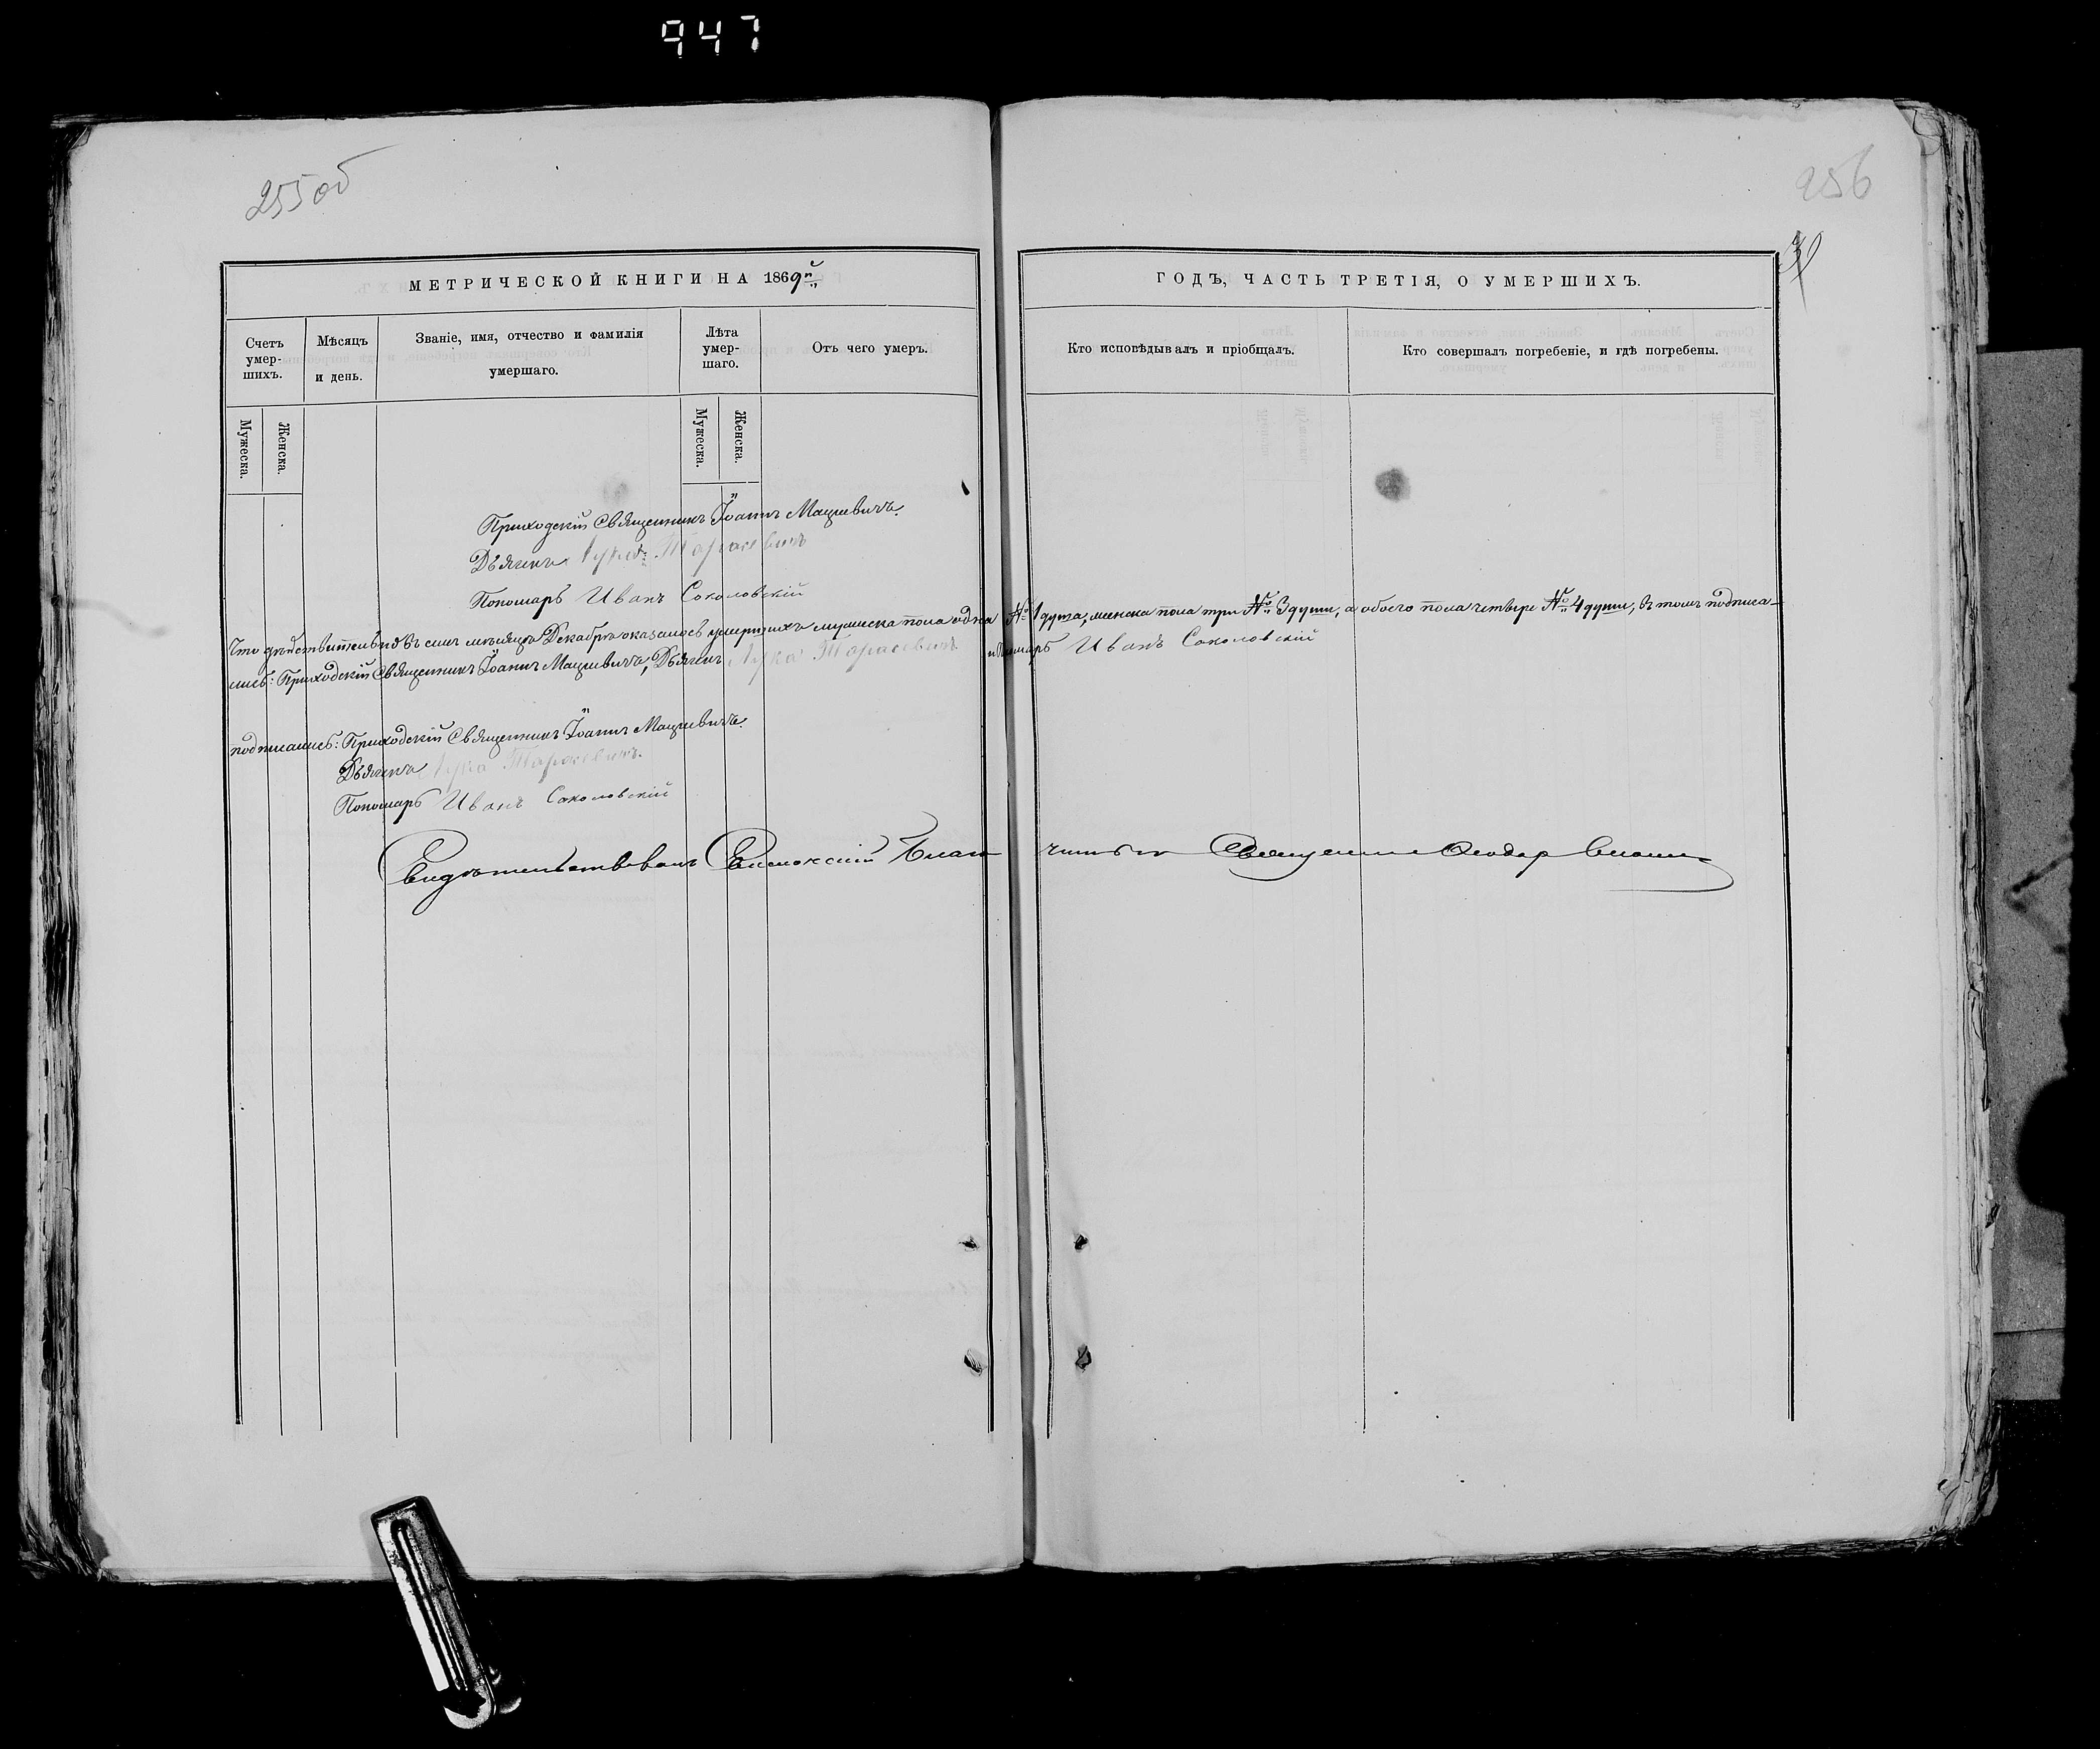 947
255 об
256
МЕТРИЧЕСКОЙ КНИГИ НА 1869й
ГОДЪ, ЧАСТЬ ТРЕТІЯ, О УМЕРШИХЪ.
Счетъ умер-
шихъ.
Мѣсяцъ
и день.
Званіе, имя, отчество и фамилія
умершаго.
Лѣта
умер-
шаго.
Отъ чего умеръ.
Кто исповѣдывалъ и пріобщалъ.
Кто совершалъ погребеніе, и гдѣ погребены.
Мужеска.
Женска.
Мужеска.
Женска.
Приходскій Священникъ Іоаннъ Мацкевичъ.
Дьячекъ Лука Тарасевичъ
Пономарь Иванъ Соколовскій
Что дѣйствительно въ семъ мѣсяцѣ Декабрѣ оказалось умершихъ мужеска пола одна № 1 душа, женска пола три № 3 души, а обоего пола четыре № 4 души, въ томъ подписа-
лись: Приходскій Священникъ Іоаннъ Мацкевичъ, Дьячекъ Лука Тарасевичъ и Пономарь Иванъ Соколовскій
подписались: Приходскій Священникъ Іоаннъ Мацкевичъ.
Дьячекъ Лука Тарасевичъ.
Пономарь Иванъ Соколовскій
Свидѣтельствовалъ Священникъ Ѳеодоръ